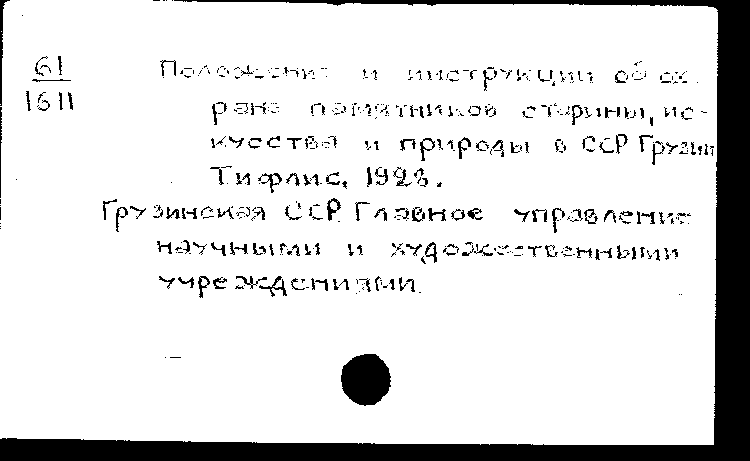 61
1611
Положение и инструкции об ох-
ране памятников старины, ис-
кусства и природы в ССР Грузии
Тифлис, 1923.
Грузинская ССР. Главное управление
научными и художественными
учреждениями.